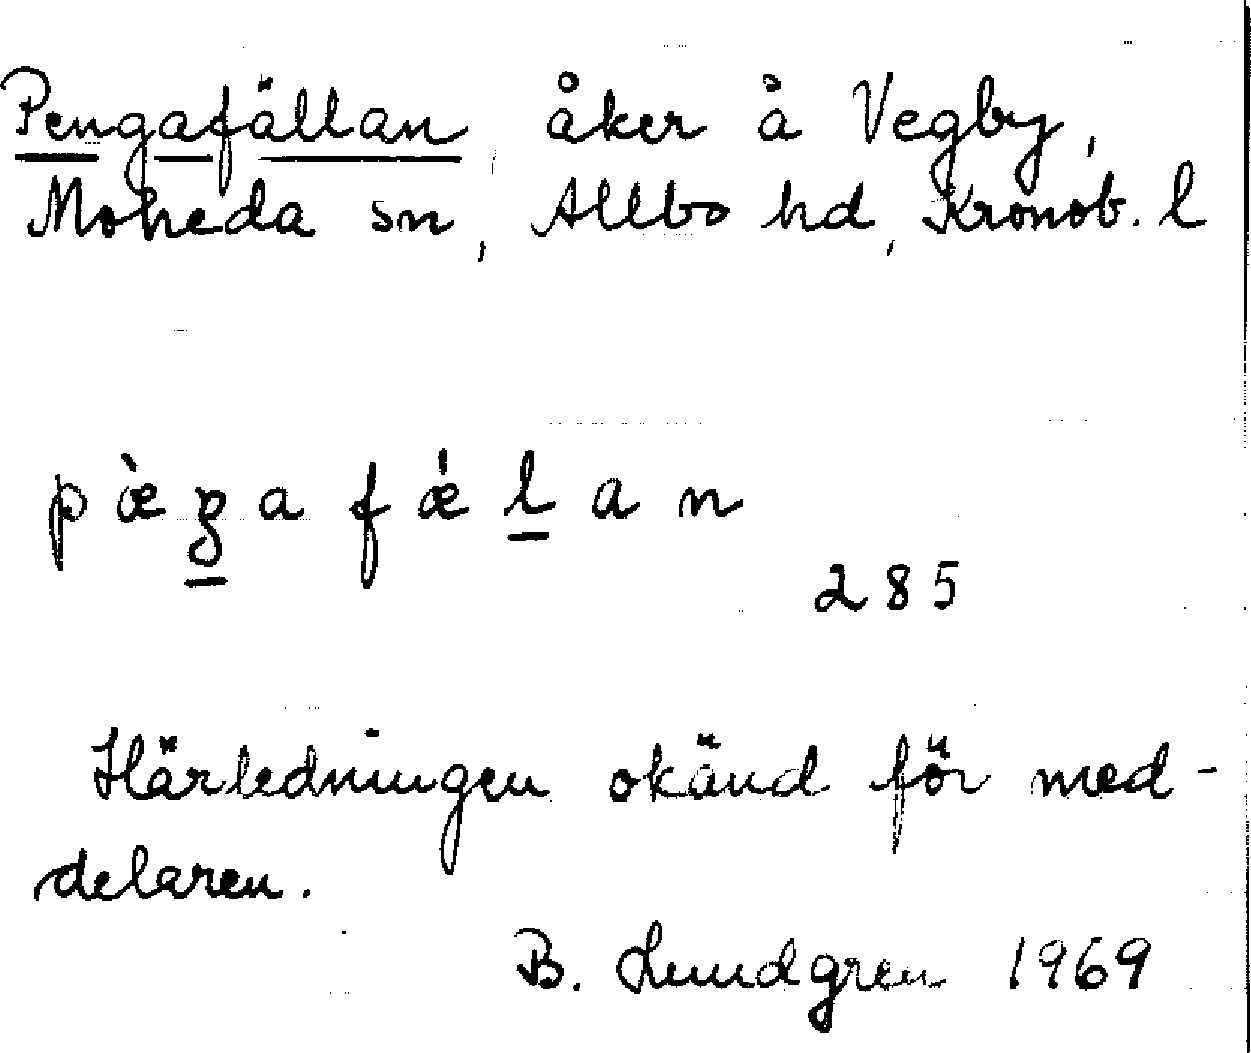 Pengafällan, åker å Vegby,
Moheda sn, Allbo hd, Kronob. l
p æ̀ ŋ a f ǽ l a n
285
Härledningen okänd för med-
delaren.
B. Lundgren 1969